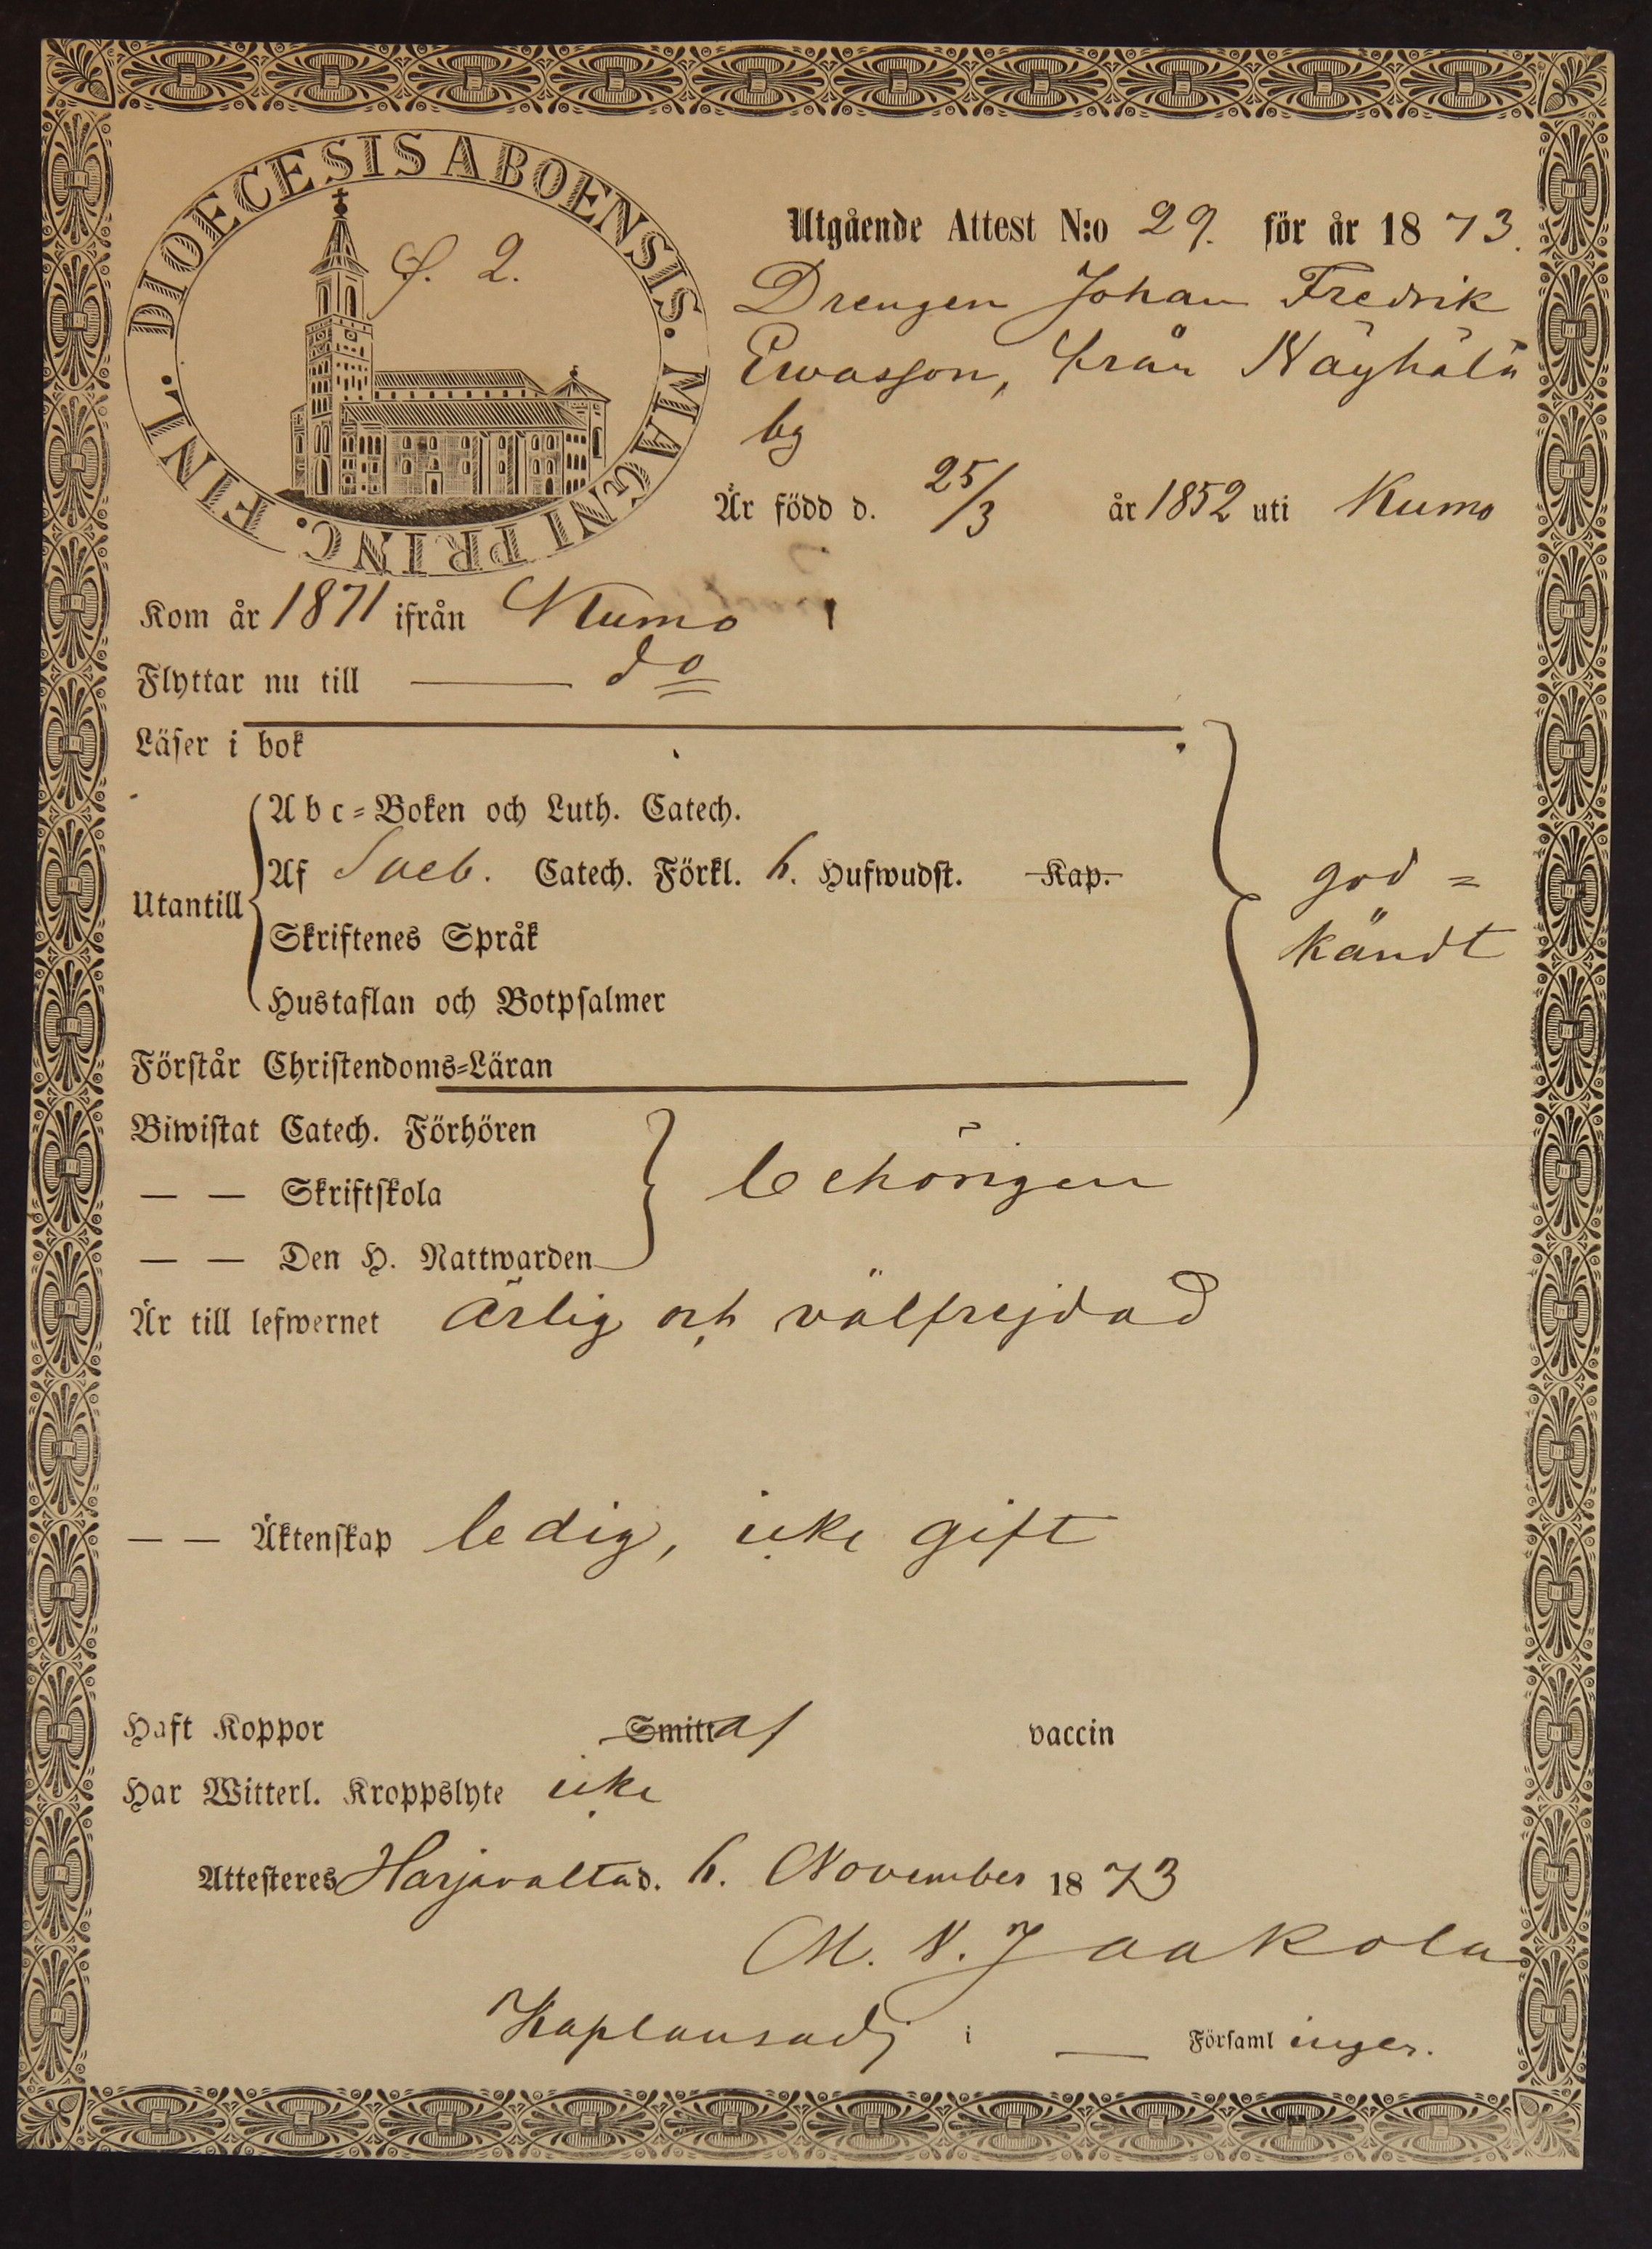 DIOECESIS ABOENSIS. MAGNI PRINC. FINL.
S. 2.
Utgående Attest N:o 29. för år 1873.
Drengen Johan Fredrik
Ewasson, från Näyhälä
by
Är född d. 25/3 år 1852 uti Kumo
Kom år 1871 ifrån Kumo
Flyttar nu till — do
Läser i bok
Abc-Boken och Luth. Catech.
Af Sveb. Catech. Förkl. 6. Hufwudst. Kap.
Utantill
Skriftenes Språk
Hustaflan och Botpsalmer
god=
kändt
Förstår Christendoms-Läran
Biwistat Catech. Förhören
— — Skriftskola
behörigen
— — Den H. Nattwarden
Är till lefwernet ärlig och välfrejdad
— — Äktenskap ledig, icke gift
Haft Koppor Smitt af vaccin
Har Witterl. Kroppslyte icke
Attesteres Harjavalta d. 6. November 1873
M. N. Jaakola
Kaplansadj i — Församlinger.